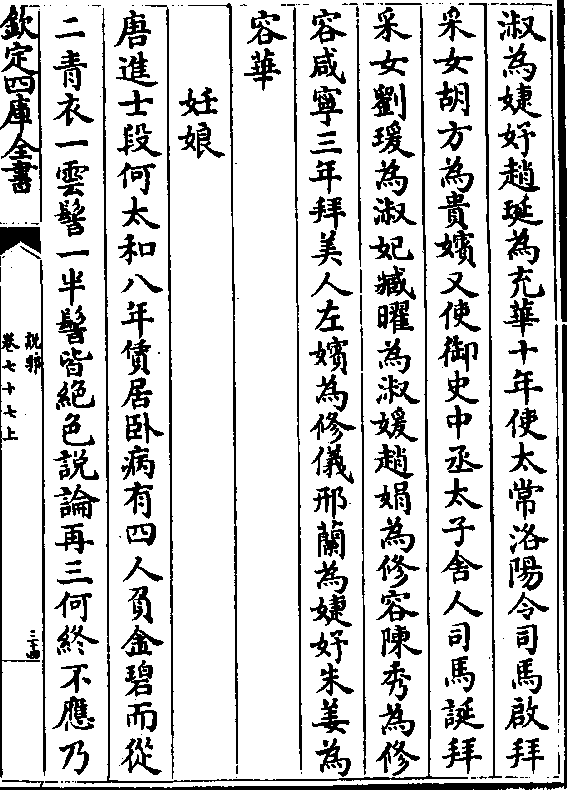 淑為婕妤趙珽為充華十年使太常洛陽令司馬啟拜
采女胡方為貴嬪又使御史中丞太子舍人司馬誕拜
采女劉瑗為淑妃臧曜為淑媛趙娟為修容陳秀為修
容咸寧三年拜美人左嬪為修儀邢蘭為婕妤朱姜為
容華
妊娘
唐進士段何太和八年賃居臥病有四人負金碧而從
二青衣一雲髻一半髻皆絕色說論再三何終不應乃
欽定四庫全書
說郛
卷七十七上
三十四